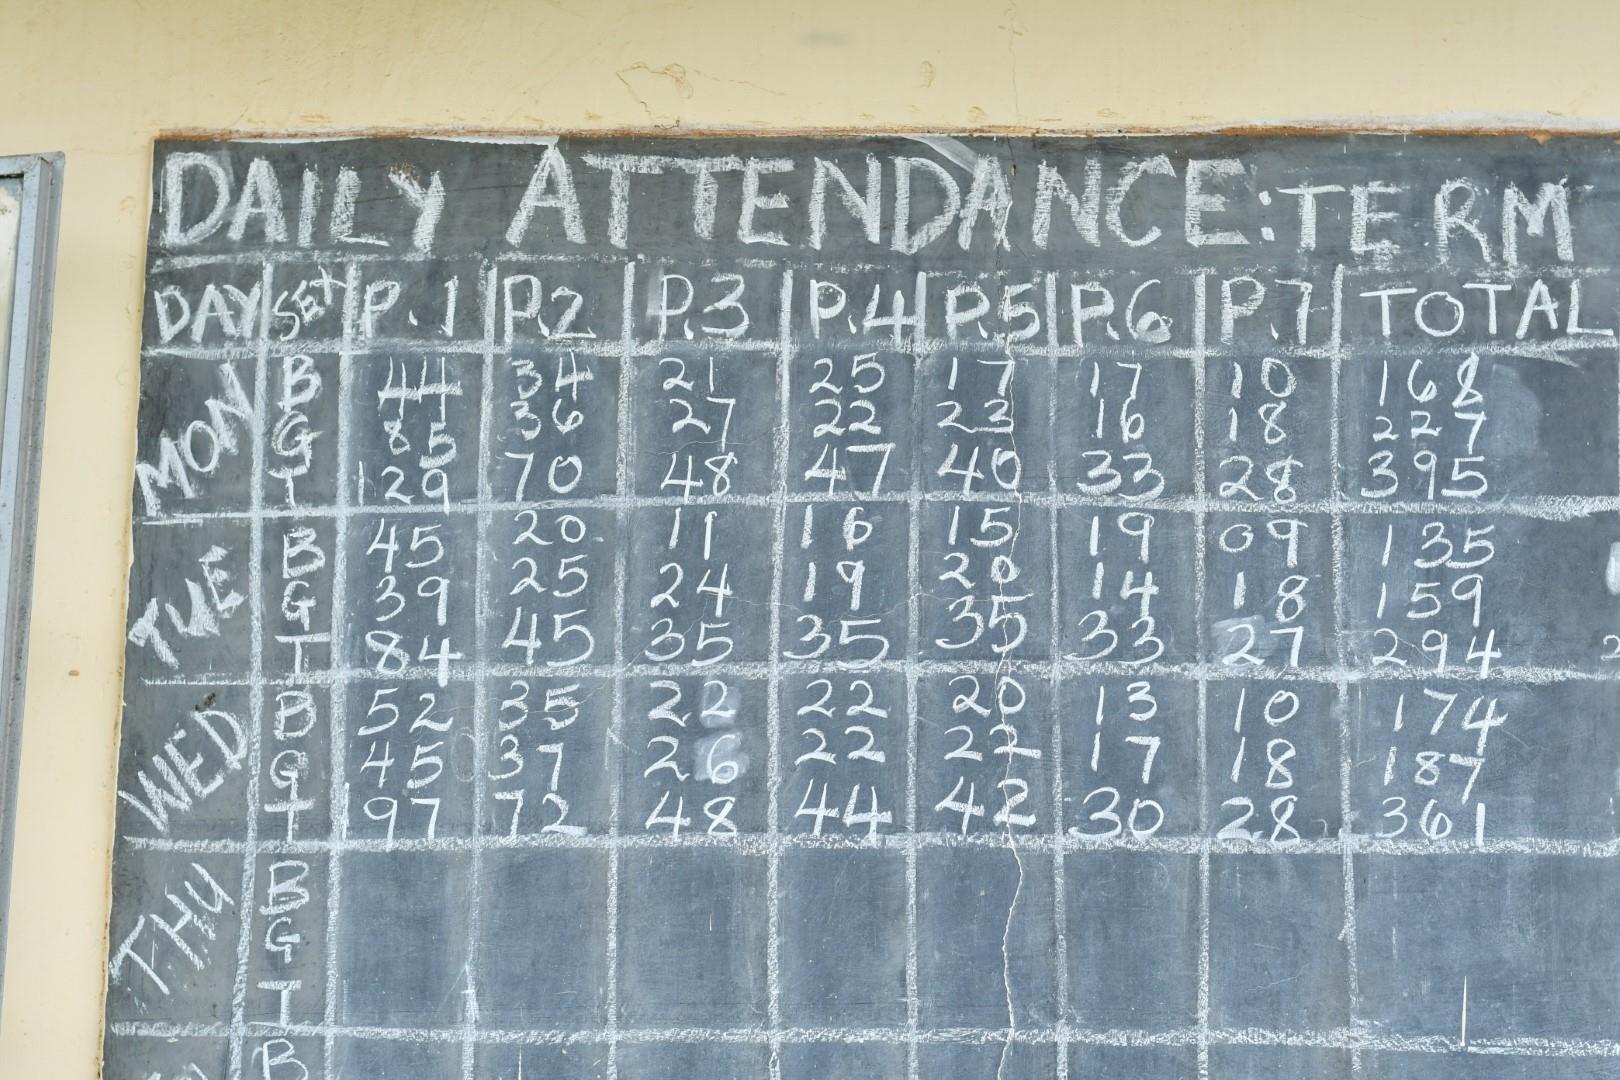 DAILY ATTENDANCE: TERM
DAY SEX P.1 P.2 P.3 P.4 P.5 P.6 P.7 TOTAL
MON B 44 34 21 25 17 17 10 168
G 85 36 27 22 23 16 18 227
T 129 70 48 47 40 33 28 395
TUE B 45 20 11 16 15 19 09 135
G 39 25 24 19 20 14 18 159
T 84 45 35 35 35 33 27 294
WED B 52 35 22 22 20 13 10 174
G 45 37 26 22 22 17 18 187
T 97 72 48 44 42 30 28 361
THU B
G
T
B